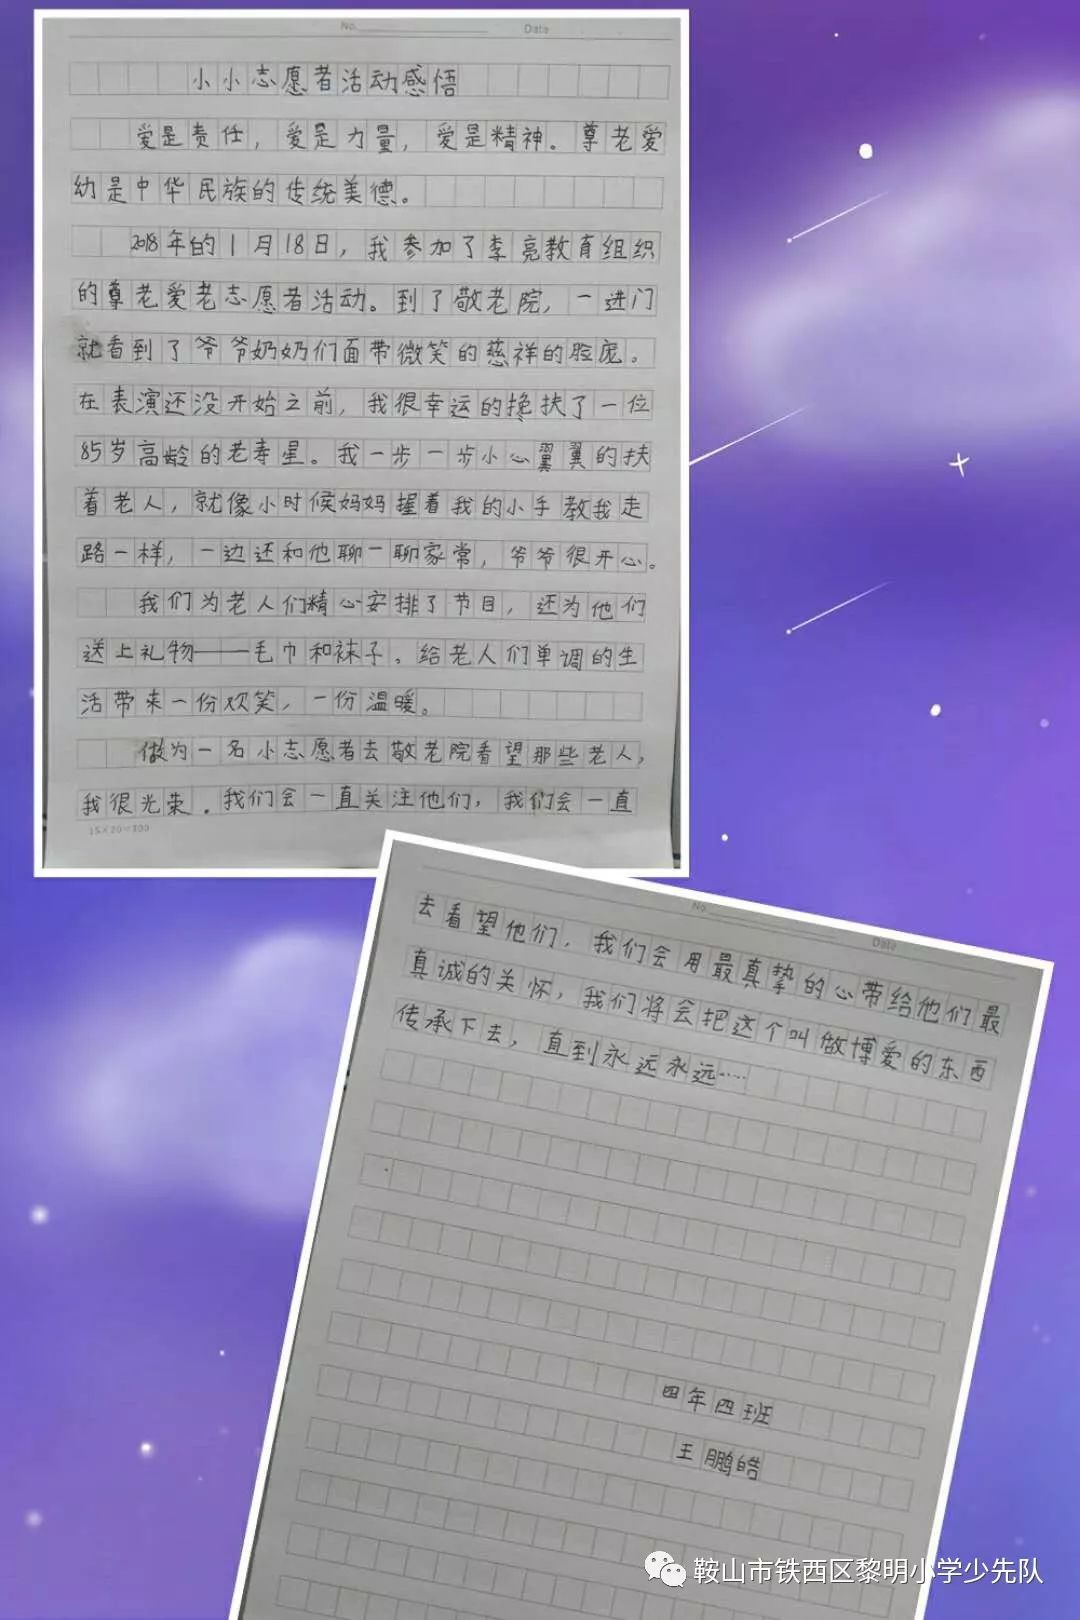 No. Date
小小志愿者活动感悟
爱是责任，爱是力量，爱是精神。尊老爱
幼是中华民族的传统美德。
2018年的1月18日，我参加了李亮教育组织
的尊老爱老志愿者活动。到了敬老院，一进门
就看到了爷爷奶奶们面带微笑的慈祥的脸庞。
在表演还没开始之前，我很幸运的搀扶了一位
85岁高龄的老寿星。我一步一步小心翼翼的扶
着老人，就像小时候妈妈握着我的小手教我走
路一样，一边还和他聊一聊家常，爷爷很开心。
我们为老人们精心安排了节目，还为他们
送上礼物——毛巾和袜子。给老人们单调的生
活带来一份欢笑，一份温暖。
做为一名小志愿者去敬老院看望那些老人，
我很光荣．我们会一直关注他们，我们会一直
15×20=300
No. Date
去看望他们，我们会用最真挚的心带给他们最
真诚的关怀，我们将会把这个叫做博爱的东西
传承下去，直到永远永远……
四年四班
王鹏皓
鞍山市铁西区黎明小学少先队